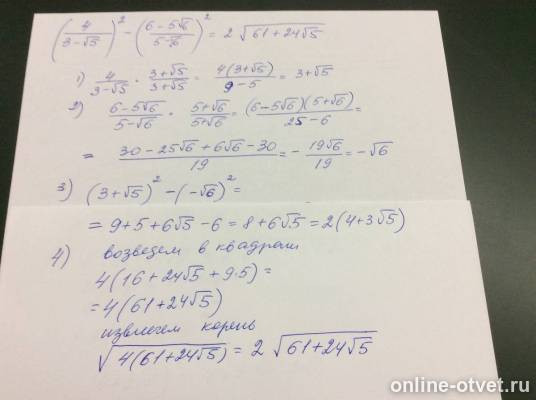 (4/(3-√5))² - ((6-5√6)/(5-√6))² = 2√(61+24√5)
1) 4/(3-√5) · (3+√5)/(3+√5) = 4(3+√5)/(9-5) = 3+√5
2) (6-5√6)/(5-√6) · (5+√6)/(5+√6) = (6-5√6)(5+√6)/(25-6) =
= (30-25√6+6√6-30)/19 = - 19√6/19 = -√6
3) (3+√5)² - (-√6)² =
= 9+5+6√5-6 = 8+6√5 = 2(4+3√5)
4) возведем в квадрат
4(16+24√5+9·5) =
= 4(61+24√5)
извлечем корень
√(4(61+24√5)) = 2√(61+24√5)
online-otvet.ru